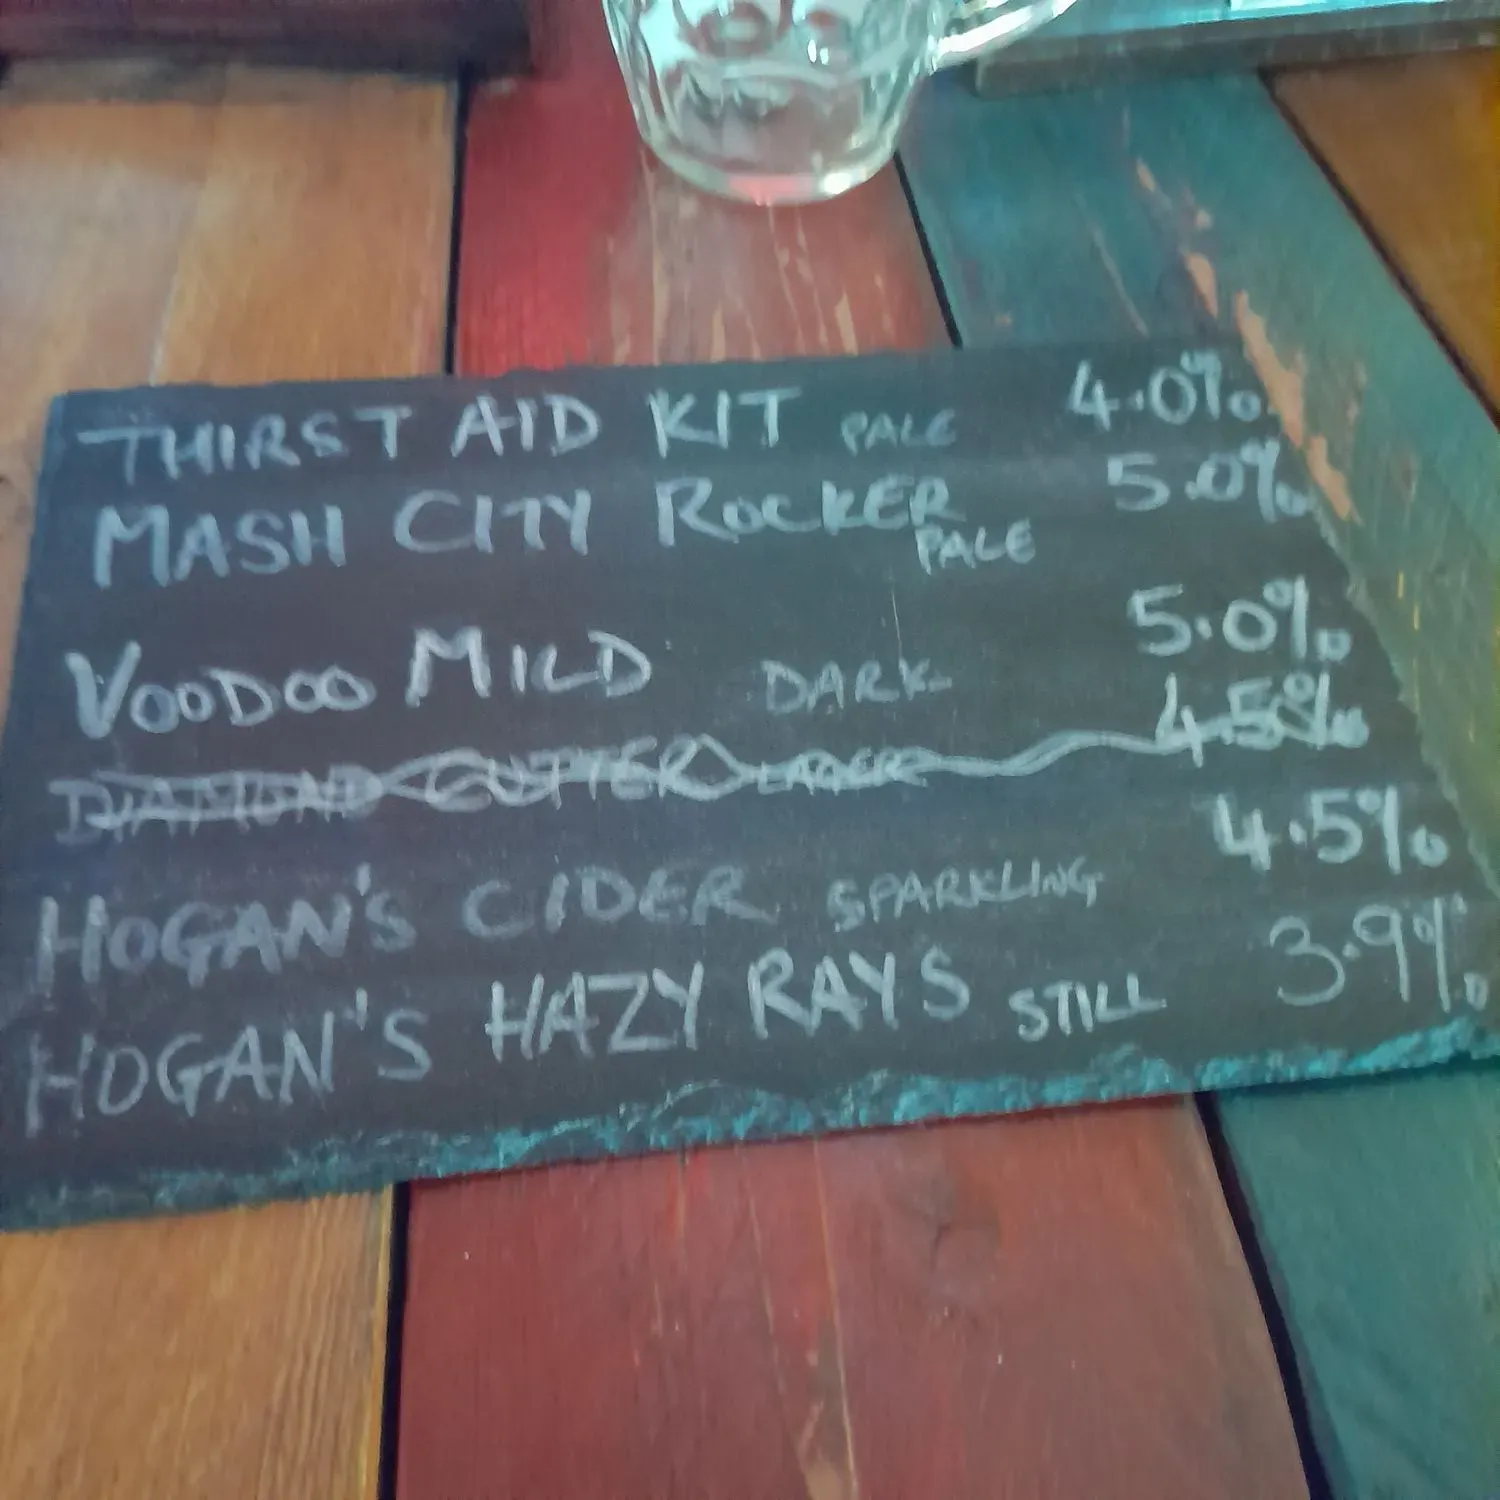 THIRST AID KIT PALE 4.0%
MASH CITY ROCKER PALE 5.0%
VOODOO MILD DARK 5.0%
DIAMOND GUTTER LAGER 4.5%
HOGAN'S CIDER SPARKLING 4.5%
HOGAN'S HAZY RAYS STILL 3.9%